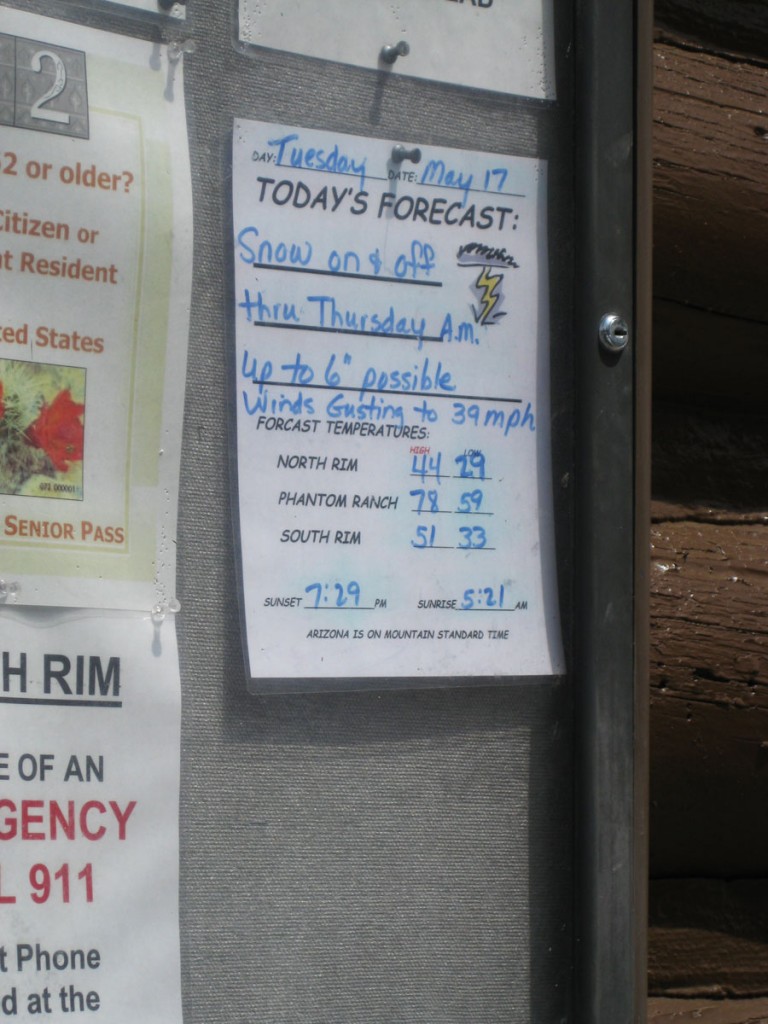 2
62 or older?
Citizen or
nt Resident
ted States
SENIOR PASS
H RIM
E OF AN
GENCY
L 911
t Phone
d at the
DAY: Tuesday DATE: May 17
TODAY'S FORECAST:
Snow on & off
thru Thursday A.M.
Up to 6" possible
Winds Gusting to 39 mph
FORCAST TEMPERATURES:
HIGH LOW
NORTH RIM 44 29
PHANTOM RANCH 78 59
SOUTH RIM 51 33
SUNSET 7:29 PM SUNRISE 5:21 AM
ARIZONA IS ON MOUNTAIN STANDARD TIME